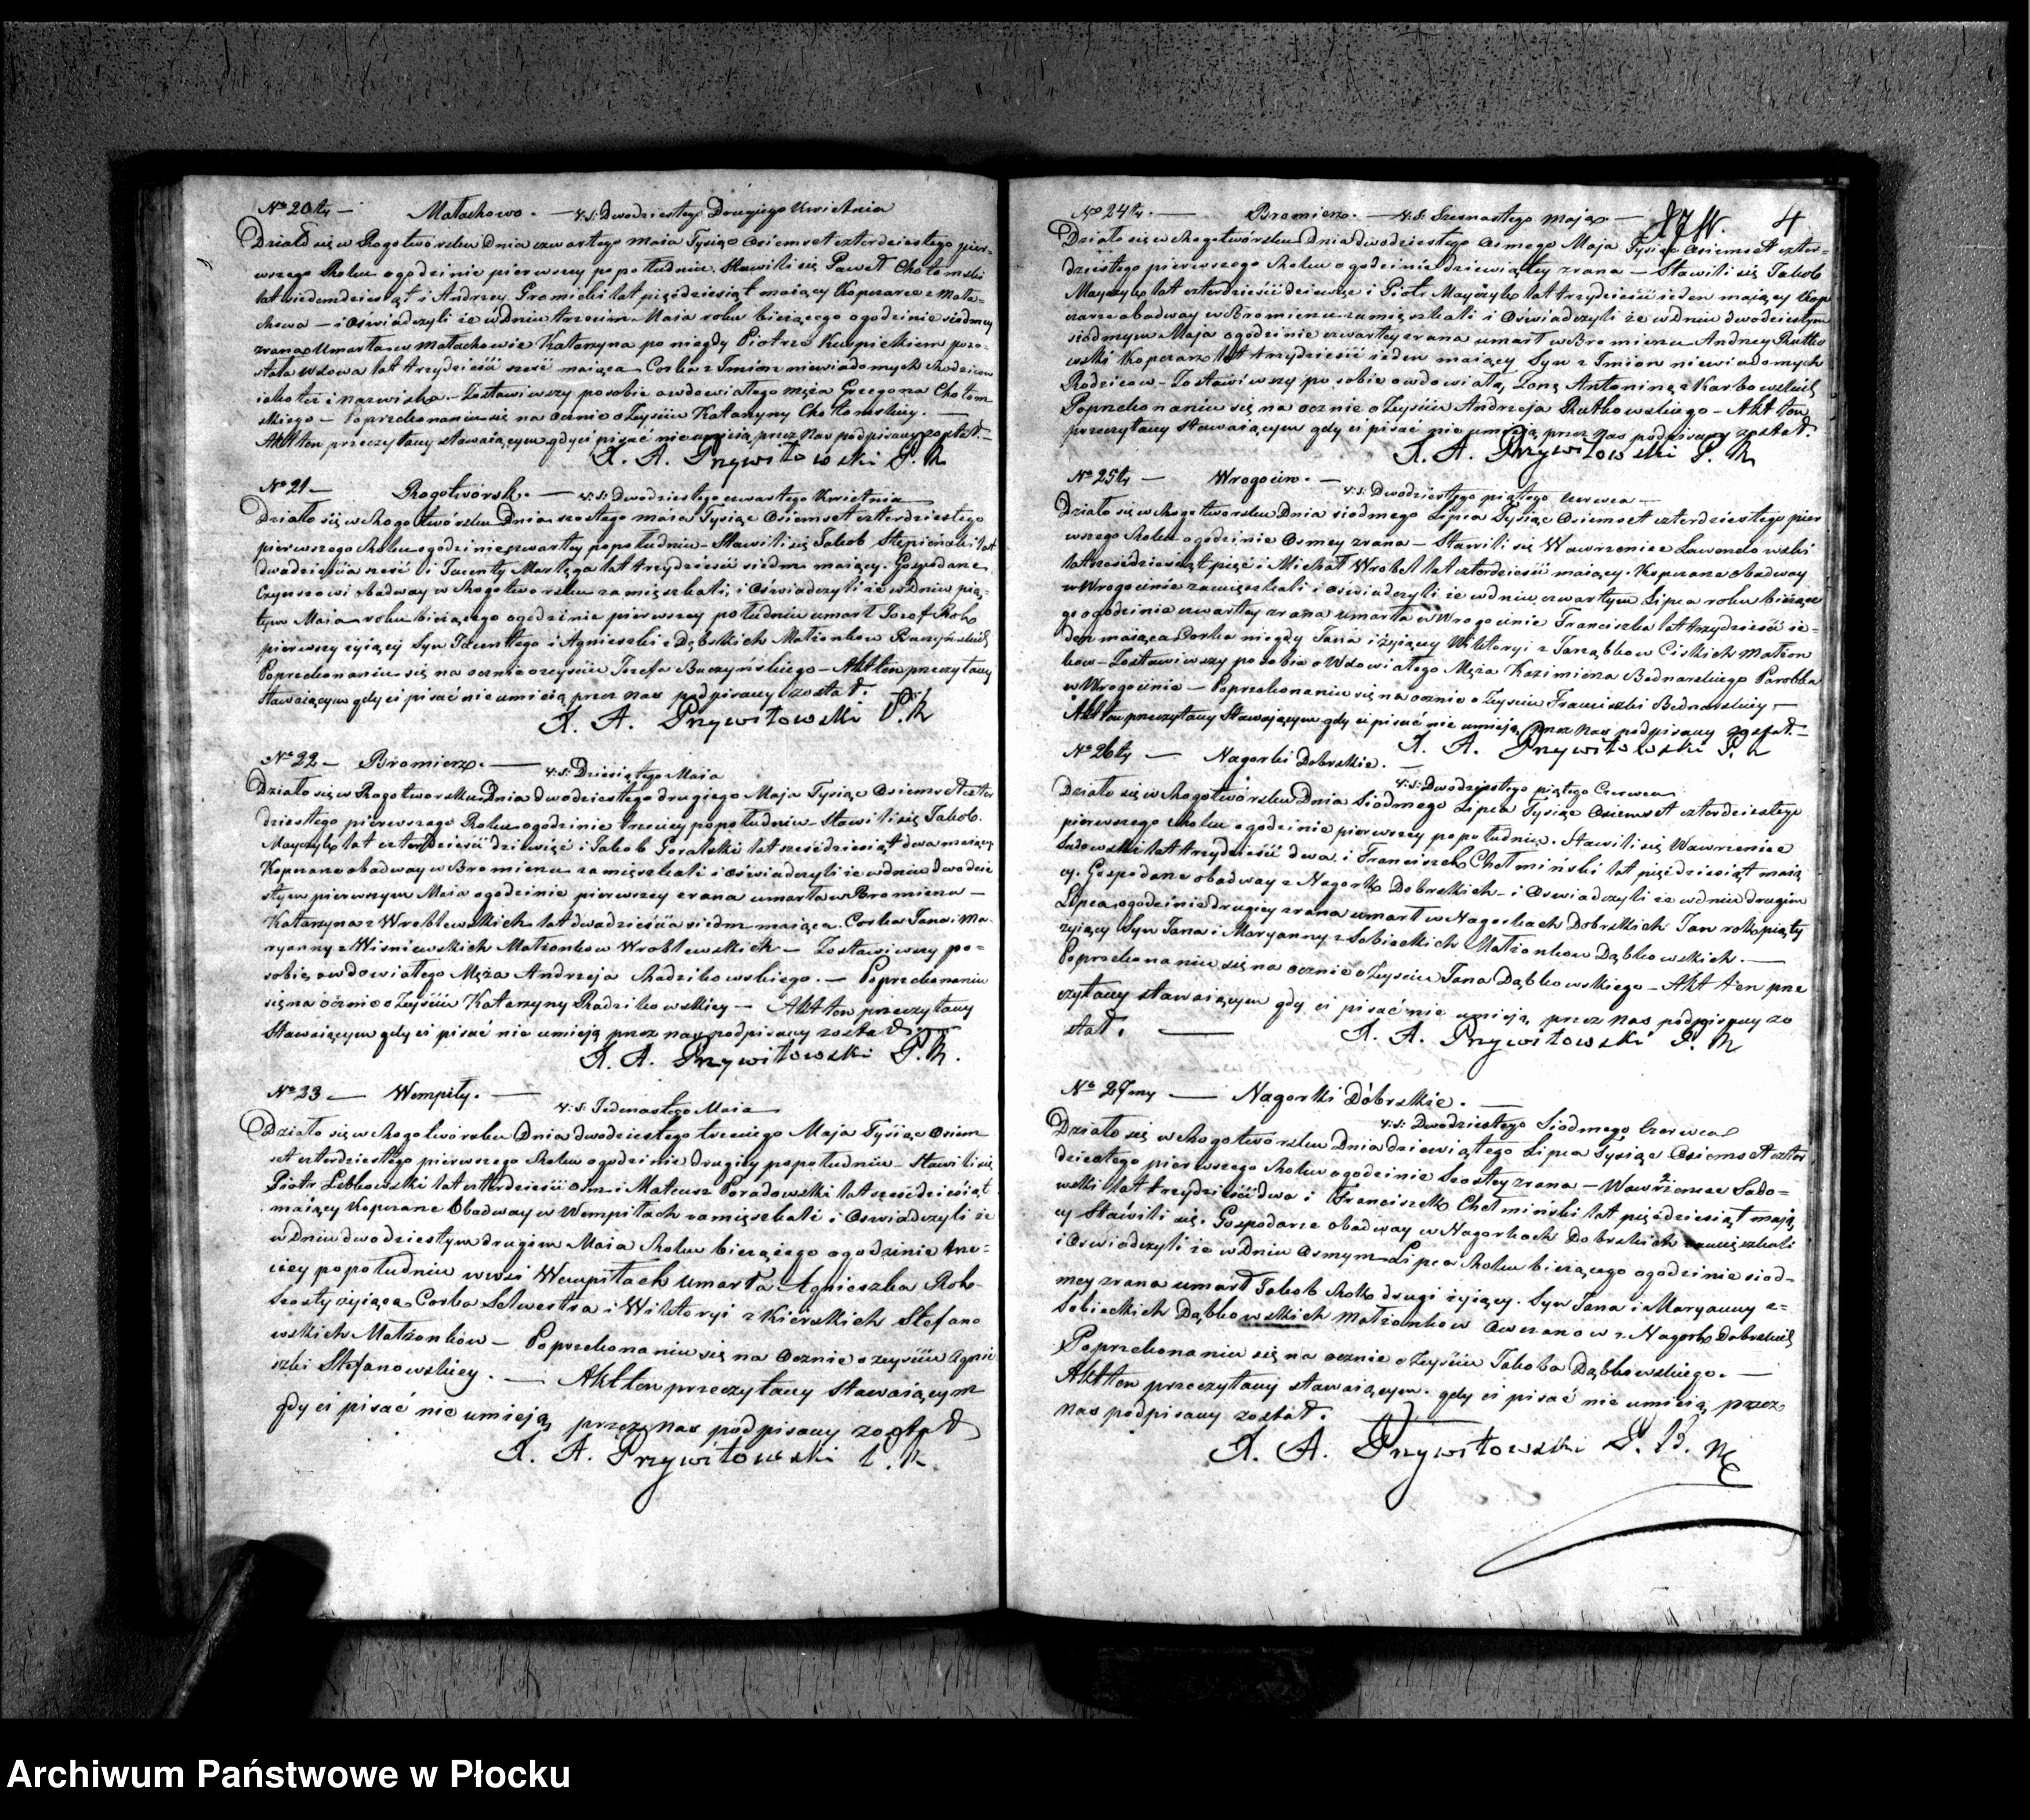 No 20ty — Małachowo. — v: s: Dwodziestego Drugiego Kwietnia
Działo się w Rogotworsku Dnia czwartego Maia Tysiąc Osiemset czterdziestego pier-
wszego Roku ogodzinie pierwszey popołudniu. Stawili się Paweł Chotomski
lat siedemdziesiąt i Andrzey Gromicki lat pięćdziesiąt maiący Koperarze z Mała-
chowa — i Oświadczyli że w Dniu trzecim Maia roku bieżącego ogodzinie siodmey
zrana Umarła w Małachowie Katarzyna po niegdy Piotrze pozo-
stała wdowa lat trzydzieści sześć maiąca Corka z Imion niewiadomych Rodzicow
iako też i nazwiska. — Zostawiwszy po sobie owdowiałego męża Grzegorza Chotom
skiego — Poprzekonaniu się na ocznie o Zeyściu Katarzyny Chotomskiey. —
Akt ten przeczytany stawaiącym gdy ci pisać nie umieią przez Nas podpisany został. —
X. A. Przywitowski P. R
No 21 — Rogotworsk. — v: s: Dwodziestego czwartego Kwietnia
Działo się w Rogotworsku Dnia szostego maia Tysiąc Osiemset czterdziestego
pierwszego Roku ogodzinie czwartey popołudniu — Stawili się Jakob Stępiński lat
dwadzieścia sześć i Jacenty Marlęga lat trzydzieści siedm maiący. Gospodarze
Czynszowi obadway w Rogotworsku zamięszkali, i Oświadczyli że w Dniu pią-
tym Maia roku bieżącego ogodzinie pierwszey południu umarł Jozef Rok
pierwszy żyiący Syn Jacentego i Agnieszki z Dąbskich Małżonkow Buczyńskich
Poprzekonaniu się na ocznie o zeyściu Jozefa Buczyńskiego — Akt ten przeczytany
stawaiącym gdy ci pisać nie umieią przez nas podpisany został.
X. A. Przywitowski P. R
No 22 — Bromierz. — v: s: Dziesiątego Maia
Działo się w Rogotworsku Dnia dwodziestego drugiego Maja Tysiąc Osiemset czter
dziestego pierwszego Roku ogodzinie trzeciey popołudniu — Stawili się Jakob.
Mayczyk lat czterdzieści dziewięć i Jakob Goralski lat sześćdziesiąt dwa maiący
Koperarze obadway w Bromierzu zamięszkali i Oświadczyli że w dniu dwodzie
stym pierwszym Maia ogodzinie pierwszey zrana umarła w Bromierzu —
Katarzyna z Wroblewskich lat dwadzieścia siedm maiąca. Corka Jana i Ma
ryanny z Wiśniewskich Małżonkow Wroblewskich — Zostawiwszy po-
sobie owdowiałego Męża Andrzeja Radzikowskiego. — Poprzekonaniu
się na ocznie o Zeyściu Katarzyny Radzikowskiey — Akt ten przeczytany
Stawaiącym gdy ci pisać nie umieją przez nas podpisany został
X. A. Przywitowski P. R.
No 23 — Wempiły. — v: s: Jedenastego Maia
Działo się w Rogotworsku Dnia dwodziestego trzeciego Maja Tysiąc Osiem
set czterdziestego pierwszego Roku ogodzinie drugiey popołudniu — Stawili się
Piotr Lebkowski lat czterdzieści osm i Mateusz Poradowski lat sześćdziesiąt
maiący Koperarze Obadway w Wempiłach zamięszkali i Oswiadczyli że
w Dniu dwodziestym drugim Maia Roku bieżącego ogodzinie trze-
ciey popołudniu wewsi Wempiłach Umarła Agnieszka Rok
szosty żyiąca Corka Selwestra i Wiktoryi z Kierskich Stefano
wskich Małżonkow — Poprzekonaniu się na Ocznie o zeyściu Agnie
szki Stefanowskiey. — Akt ten przeczytany Stawaiącym
gdy ci pisać nie umieją przez nas podpisany został
X. A. Przywitowski P. R.
4
No 24ty. — Bromierz. — v: s: Szesnastego Maja —
Działo się w Rogotwórsku Dnia dwodziestego Osmego Maja Tysiąc Osiemset czter-
dziestego pierwszego Roku ogodzinie dziewiątey zrana — Stawili się Jakob
Mayczyk lat czterdzieści dziewięć i Piotr Mayczyk lat trzydzieści ieden maiący Kop
erarze obadway w Bromierzu zamięszkali i Oświadczyli że w Dniu dwodziestym
siódmym Maja ogodzinie czwartey zrana umarł w Bromierzu Andrzey Rutko
wski Koperarz lat trzydzieści ieden maiący Syn z Imion niewiadomych
Rodzicow — Zostawiwszy po sobie owdowiałą Zonę Antoninę z Karbowskich
Poprzekonaniu się na ocznie o Zeyściu Andrzeja Rutkowskiego — Akt ten
przeczytany stawaiącym gdy ci pisać nie umieją przez nas podpisany został.
X. A. Przywitowski P. R
No 25ty — Wrogocin. — v: s: Dwodziestego piątego Czerwca —
Działo się w Rogotworsku Dnia siodmego Lipca Tysiąc Osiemset czterdziestego pier
wszego Roku ogodzinie Osmey zrana — Stawili się Wawrzeniec Lawendowski
lat sześćdziesiąt pięć i Michał Wrobel lat czterdzieści maiący. Koperarze obadway
w Wrogocinie zamięszkali i oświadczyli że w dniu czwartym Lipca roku bieżące
go ogodzinie czwartey zrana umarła w Wrogocinie Franciszka lat trzydzieści ie-
den maiąca Corka niegdy Jana i żyiącey Wiktoryi z Jarząbkow Ciskich Małżon
kow — Zostawiwszy po sobie owdowiałego Męża Kazimierza Bednarskiego Parobka
w Wrogocinie — Poprzekonaniu się na ocznie o Zeyściu Franciszki Bednarskiey —
Akt ten przeczytany Stawaiącym gdy ci pisać nie umieją przez Nas podpisany został. —
X. A. Przywitowski P. R
No 26ty — Nagorki Dobrskie. — v: s: Dwodziestego piątego Czerwca
Działo się w Rogotwórsku Dnia Siodmego Lipca Tysiąc Osiemset czterdziestego
pierwszego Roku ogodzinie pierwszey popołudniu. Stawili się Wawrzeniec
Sadowski lat trzydzieści dwa i Franciszek Chełmiński lat pięćdziesiąt maią
cy. Gospodarze obadway z Nagork Dobrskich — i Oswiadczyli że w dniu drugim
Lipca ogodzinie drugiey zrana umarł w Nagorkach Dobrskich Jan rok piąty
żyiący Syn Jana i Maryanny z Sobieckich Małżonkow Dąbkowskich. —
Poprzekonaniu się na ocznie o Zeyściu Jana Dąbkowskiego — Akt ten prze
czytany stawaiącym gdy ci pisać nie umieją przez nas podpisany zo
stał. — X. A. Przywitowski P. R
No 27my — Nagorki Dóbrskie. — v: s: Dwodziestego Siodmego Czerwca
Działo się w Rogotworsku Dnia dziewiątego Lipca Tysiąc Osiemset czter
dziestego pierwszego Roku ogodzinie szostey zrana — Wawrzeniec Sado-
wski lat trzydzieści dwa i Franciszek Chełmiński lat pięćdziesiąt mają
cy Stawili się. Gospodarze obadway w Nagorkach Dobrskich zamięszkali
i Oswiadczyli że w Dniu Osmym Lipca Roku bieżącego ogodzinie siod-
mey zrana umarł Jakob Rok drugi żyiący. Syn Jana i Maryanny z-
Sobieckich Dąbkowskich Małżonkow Owczarzow z Nagork Dobrskich
Poprzekonaniu się na ocznie o Zeyściu Jakoba Dąbkowskiego. —
Akt ten przeczytany stawaiącym. gdy ci pisać nie umieią przez
nas podpisany został.
X. A. Przywitowski
Archiwum Państwowe w Płocku